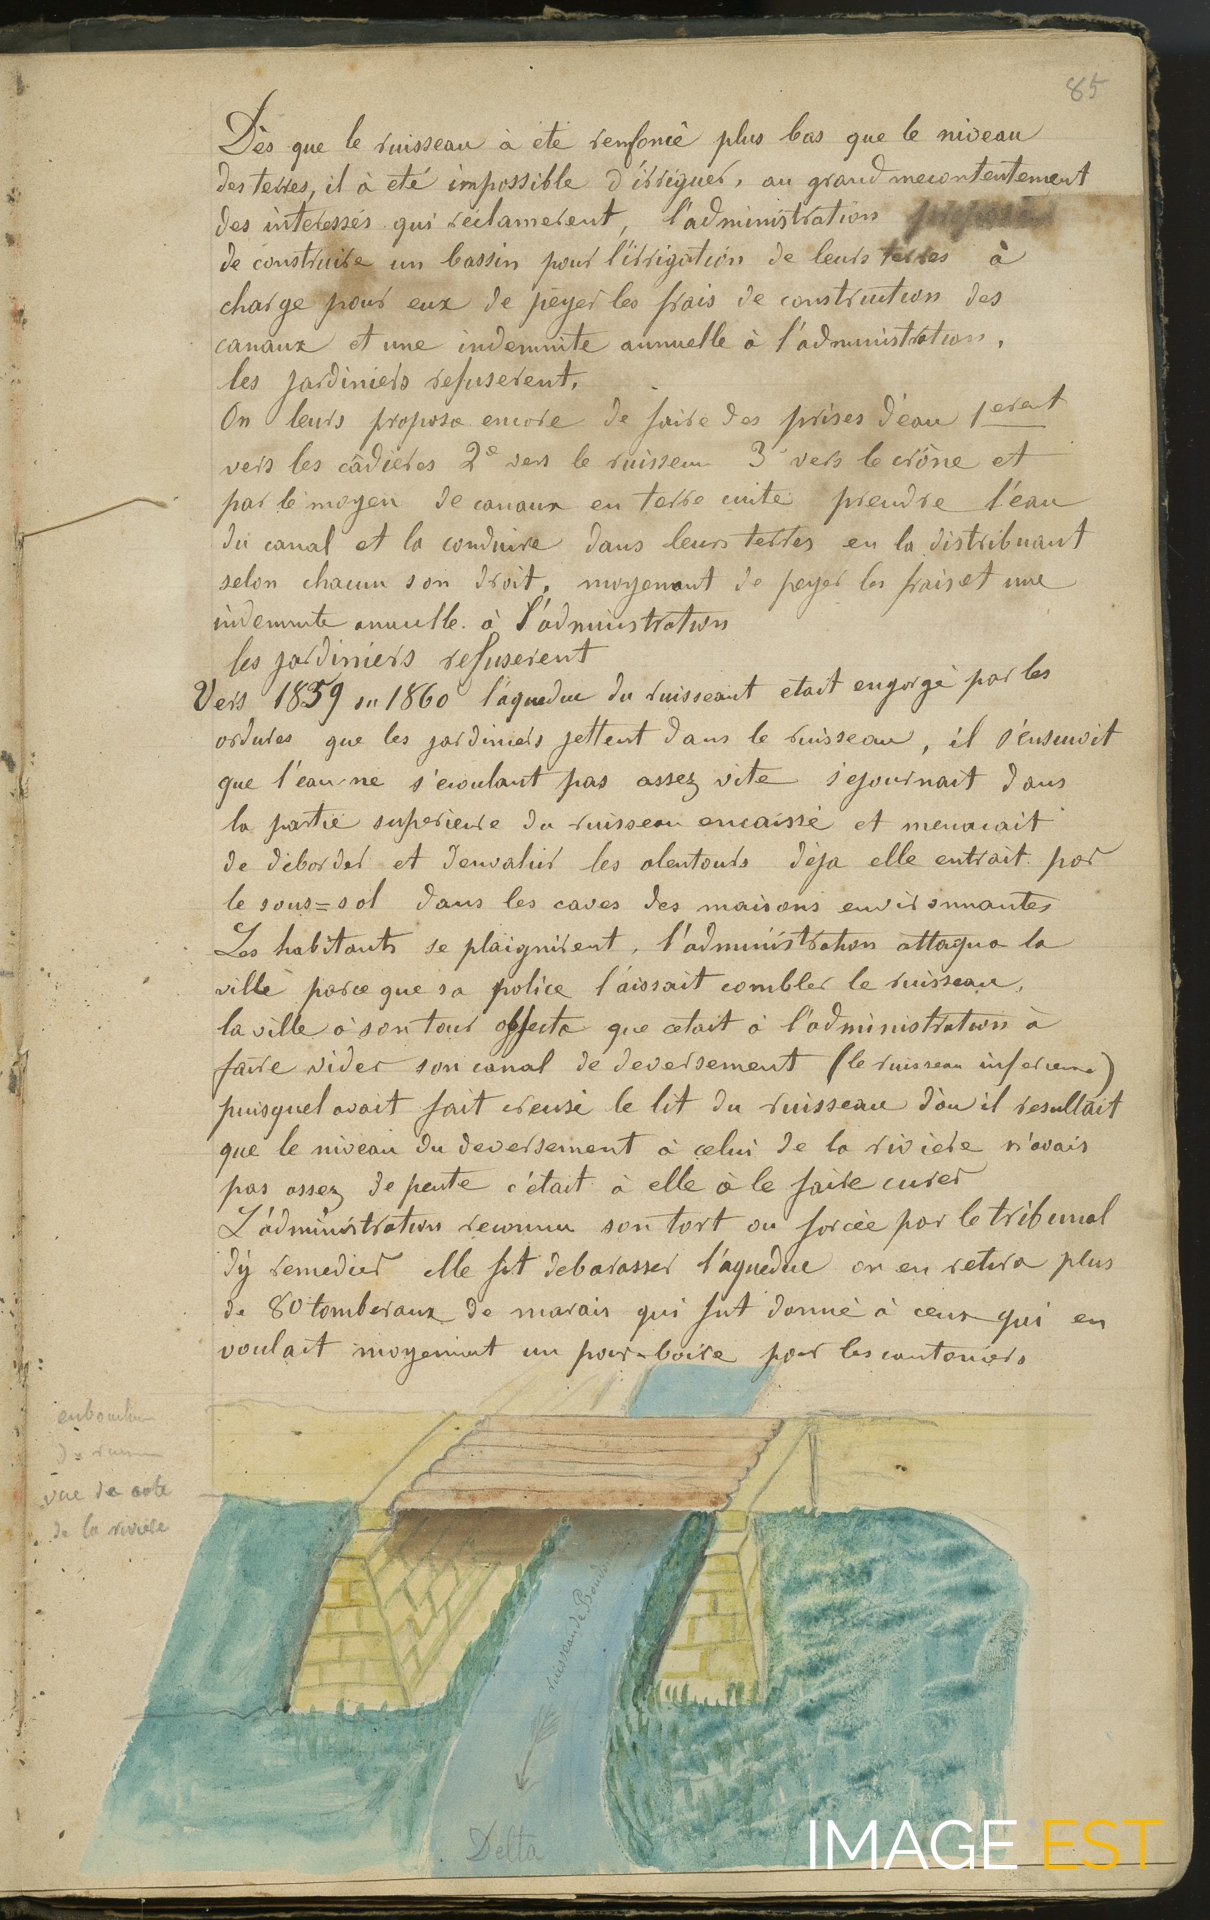 85
Dès que le ruisseau à été renfoncé plus bas que le niveau
des terres, il à été impossible d'irriguer, au grand mecontentement
des interessés qui réclamerent, l'administration proposa
de construire un bassin pour l'irrigation de leurs terres à
charge pour eux de peyer les frais de construction des
canaux et une indemnite annuelle à l'administration,
les jardiniers refuserent.
On leurs proposa encore de faire des prises d'eau 1erent
vers les câdieres 2e vers le ruisseau 3 vers le crône et
par le moyen de canaux en terre cuite prendre l'eau
du canal et la conduire dans leurs terres en la distribuant
selon chacun son droit, moyenant de peyer les frais et une
indemnite annuelle à l'administration
les jardiniers refuserent
Vers 1859 ou 1860 l'aqueduc du ruisseaut etait engorgé par les
ordures que les jardiniers jettent dans le ruisseau, il s'ensuivoit
que l'eau ne s'ecoulant pas assez vite séjournait dans
la partie superieure du ruisseau encaissé et menacait
de déborder et d'envahir les alentours déja elle entrait par
le sous=sol dans les caves des maisons environnantes
Les habitants se plaignirent, l'administration attaqua la
ville parce que sa police laissait combler le ruisseau,
la ville à son tour objecta que cetait à l'administration à
faire vider son canal de deversement (le ruisseau inferieure)
puisquel avait fait creusé le lit du ruisseau d'ou il resultait
que le niveau du deversement à celui de la riviere n'avais
pas assez de pente c'était à elle à le faire curer
L'administration reconnu son tort ou forcée par le tribunal
d'y remedier elle fit debarasser l'aqueduc on en retira plus
de 80 tomberaux de marais qui fut donné à ceux qui en
voulait moyennant un pour-boire pour les cantoniers
vue de coté
de la riviere
ruisseau de
Delta
IMAGE EST